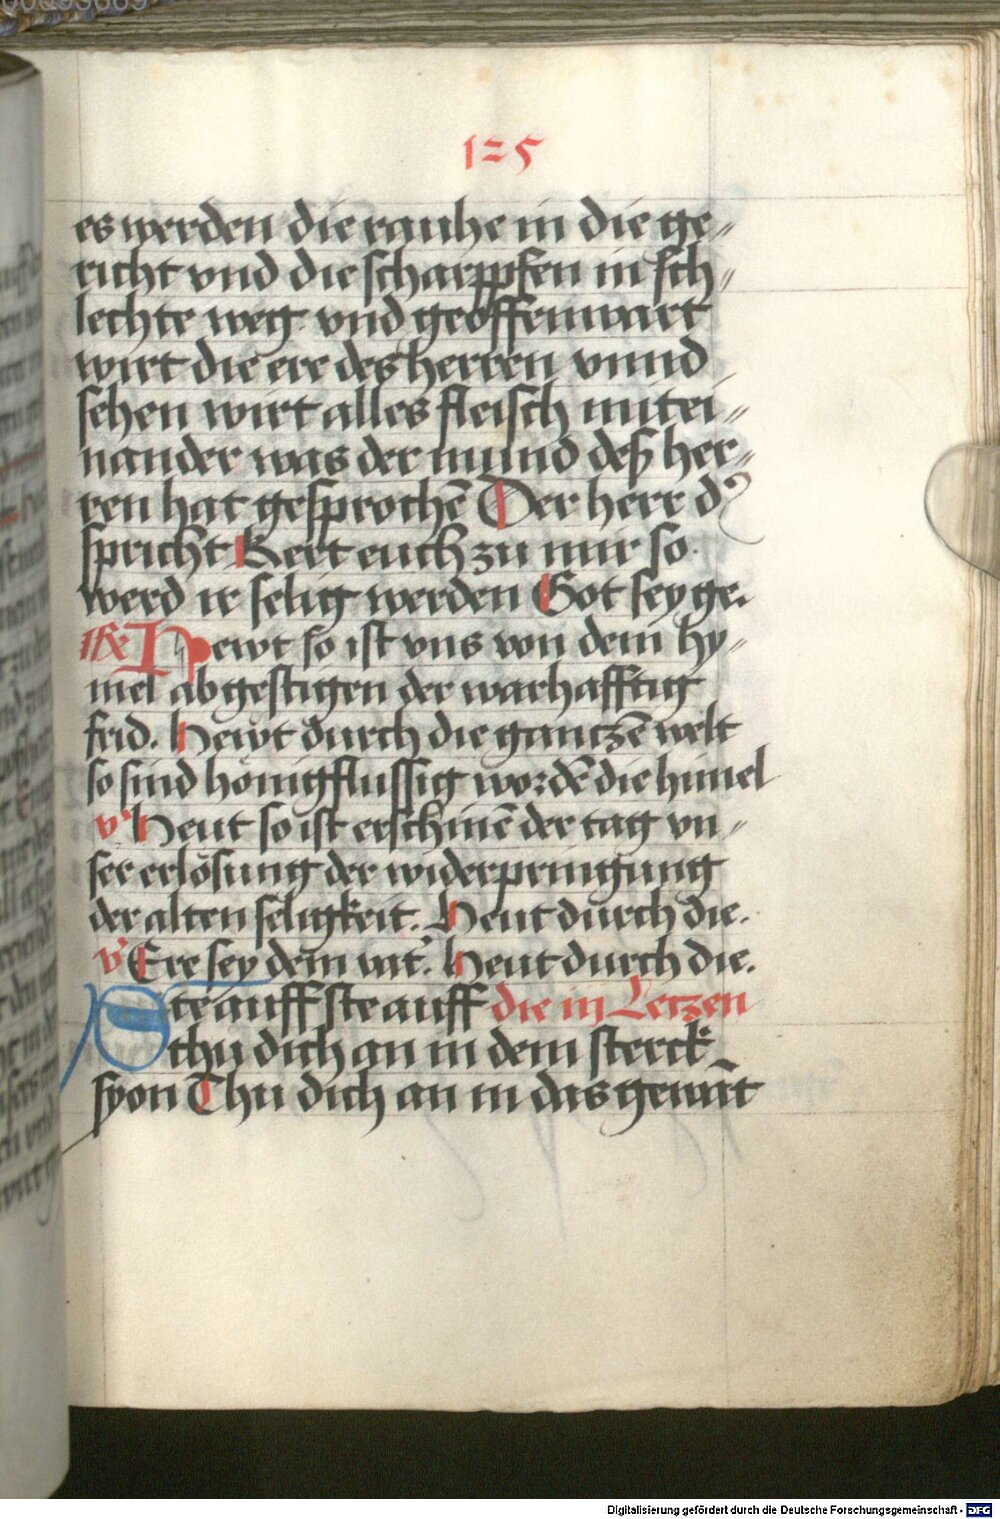 125
es werden die rauhe in die ge⸗
richt vnd die scharppfen in sch⸗
lechte weg. vnd geoffenwart
wirt die ere des herren vnnd
sehen wirt alles fleisch mitei⸗
nander was der mund deß her⸗
ren hat gesprochē Der herr d'
spricht Kert euch zu mir so
werd ir selig werden Got sey ge.
Hewt so ist vns von dem hy⸗
mel abgestigen der warhafftig
frid. Hewt durch die gantzē welt
so sind hönigflussig wordē die himel
v' Heut so ist erschinē der tag vn⸗
ser erlösung der widerpringung
der alten seligkeit. Heut durch die.
v' Ere sey dem vat'. Heut durch die.
Ste auff ste auff die iij Letzen
thu dich an in dem sterck
syon Thu dich an in das gewāt
Digitalisierung gefördert durch die Deutsche Forschungsgemeinschaft - DFG